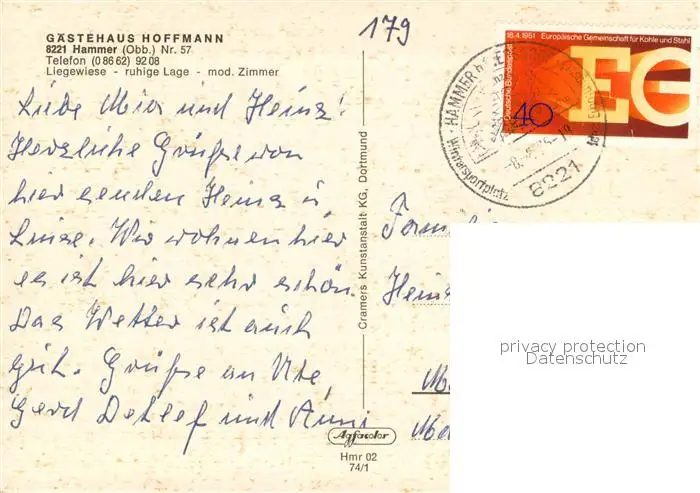 GÄSTEHAUS HOFFMANN
8221 Hammer (Obb.) Nr. 57
Telefon (0 86 62) 92 08
Liegewiese - ruhige Lage - mod. Zimmer
179
Liebe Mia und Heinz!
Herzliche Grüsse von
hier senden Heinz u.
Luise. Wir wohnen hier
es ist hier sehr schön.
Das Wetter ist auch
gut. Grüsse an Ute,
Gerd Detlef und Anni
Cramers Kunstanstalt KG, Dortmund
Agfacolor
Hmr 02
74/1
18.4.1951 Europäische Gemeinschaft für Kohle und Stahl
Deutsche Bundespost
40
EG
HAMMER
Wintersportplatz
8221
Familie
Heinz
privacy protection
Datenschutz